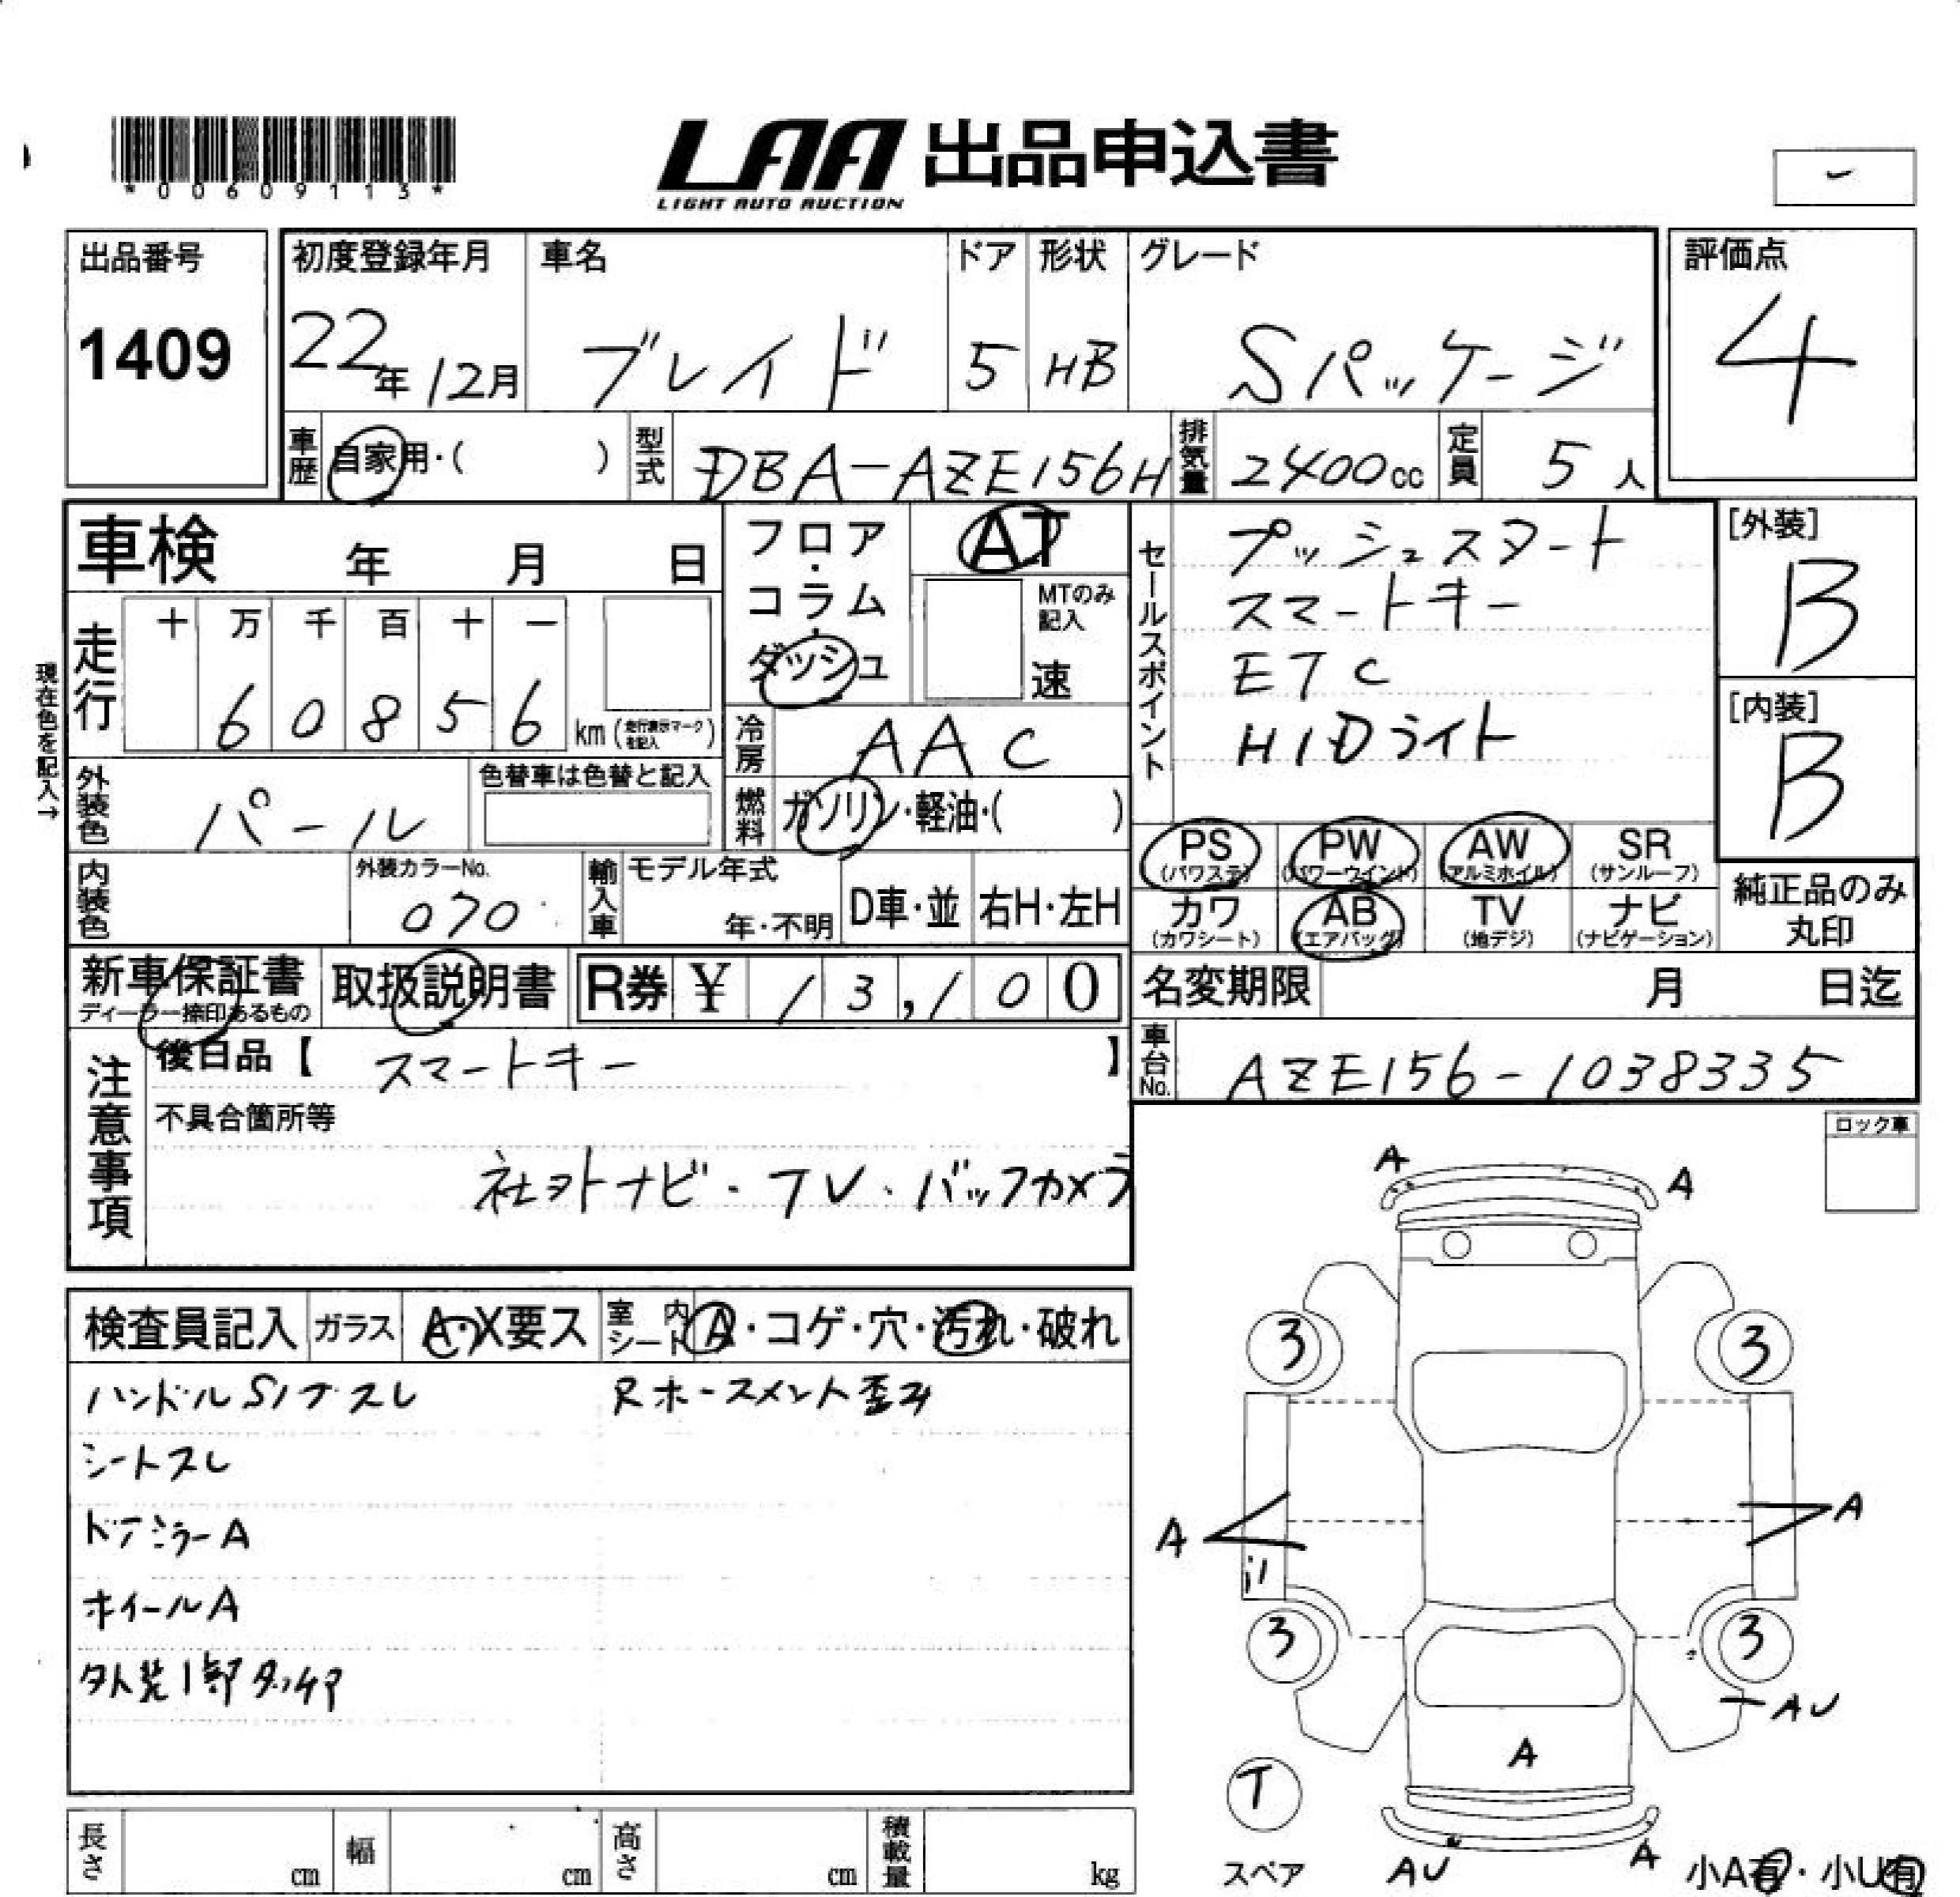 *00609113*
LAA 出品申込書
LIGHT AUTO AUCTION
出品番号
1409
初度登録年月 車名 ドア 形状 グレード 評価点
22年12月 ブレイド 5 HB Sパッケージ 4
車歴 自家用・( ) 型式 DBA-AZE156H 排気量 2400cc 定員 5人
車検 年 月 日
フロア・コラム・ダッシュ
AT
MTのみ記入
速
セールスポイント
プッシュスタート
スマートキー
ETC
HIDライト
[外装]
B
[内装]
B
現在色を記入→
走行 十 万 千 百 十 一
60856 km (走行表示マークを記入)
冷房 AAC
外装色 パール 色替車は色替と記入
燃料 ガソリン・軽油・( )
PS (パワステ) PW (パワーウインド) AW (アルミホイル) SR (サンルーフ)
カワ (カワシート) AB (エアバッグ) TV (地デジ) ナビ (ナビゲーション)
純正品のみ丸印
内装色 外装カラーNo. 070 輸入車 モデル年式 年・不明 D車・並 右H・左H
新車保証書 ディーラー捺印あるもの 取扱説明書 R券 ¥ 13,100
名変期限 月 日迄
車台No. AZE156-1038335
注意事項
後日品【 スマートキー 】
不具合箇所等
社外ナビ・TV・バックカメラ
ロック車
検査員記入 ガラス A・X要ス 室内シート A・コゲ・穴・汚れ・破れ
ハンドルSノブスレ Rホースメント歪み
シートスレ
ドアミラーA
ホイールA
外装1部タッチP
A A
3 3
A A
3 3
AU
A
T
スペア
AU A
小A有・小U有
長さ cm 幅 cm 高さ cm 積載量 kg